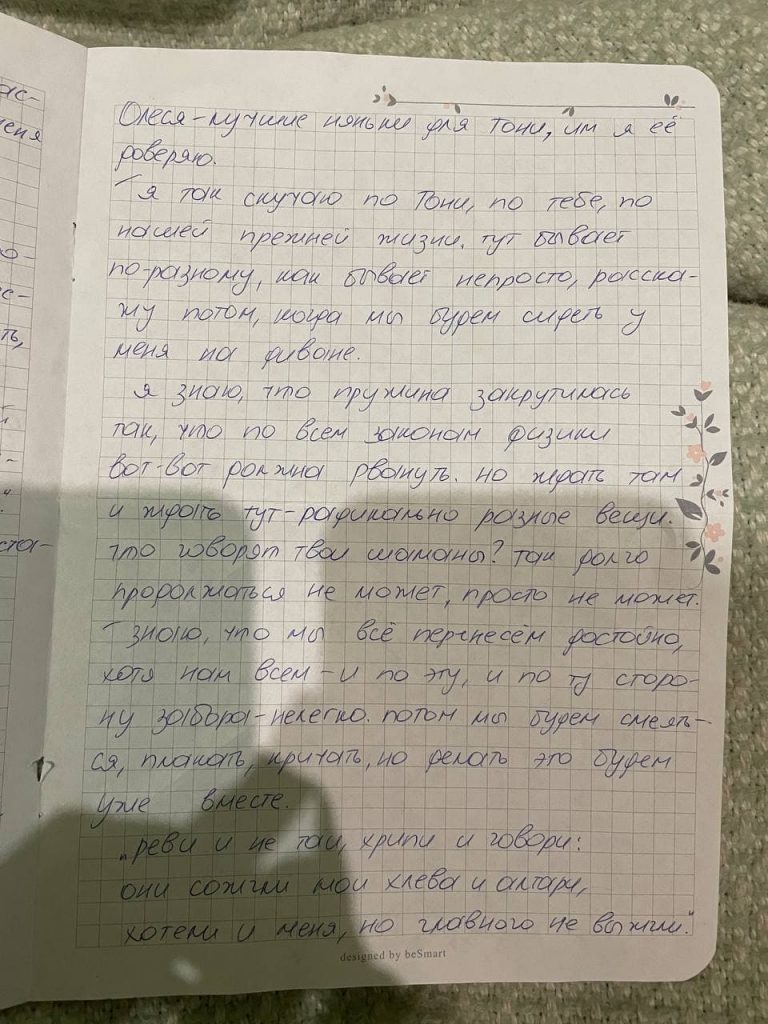 ас-
меня
о-
с-
ть,
й
-
ста-
Олеся – лучшие няньки для Тони, им я её
доверяю.
я так скучаю по Тони, по тебе, по
нашей прежней жизни. тут бывает
по-разному, как бывает непросто, расска-
жу потом, когда мы будем сидеть у
меня на диване.
я знаю, что пружина закрутилась
так, что по всем законам физики
вот-вот должна рвануть. но ждать там
и ждать тут – радикально разные вещи.
что говорят твои шаманы? так долго
продолжаться не может, просто не может.
знаю, что мы всё перенесём достойно,
хотя нам всем – и по эту, и по ту сторо-
ну забора – нелегко. потом мы будем смеять-
ся, плакать, кричать, но делать это будем
уже вместе.
„реви и не таи, хрипи и говори:
они сожгли мои хлева и алтари,
хотели и меня, но главного не выжгли."
designed by beSmart